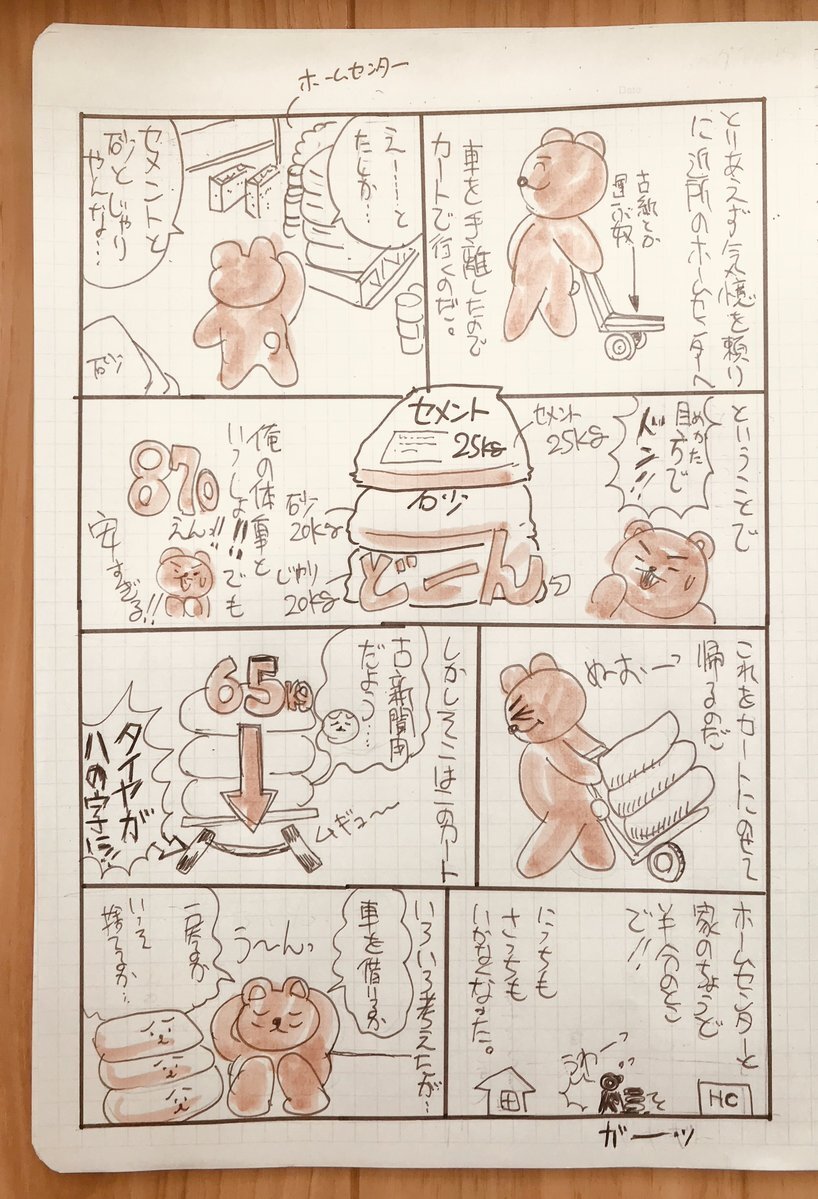 ホームセンター
とりあえず記憶を頼り
に近所のホームセンターへ
古紙とか
運ぶ奴
車を手離したので
カートで行くのだ。
えーーと
たしか…
セメントと
砂とじゃり
やんな…
砂
ということで
めかた
目方で
ドン!!
セメント
25kg
セメント
25kg
砂
砂
20kg
じゃり
20kg
どーん
俺の体重と
いっしょ!!!でも
870
えん!!
安すぎる!!
これをカートにのせて
帰るのだ
ぬおーっ
しかしそこは一のカート
古新聞用
だよう…
65kg
ムギュー
タイヤが
ハの字に!!
ホームセンターと
家のちょうど
半分のとこ
で!!
にっちも
さっちも
いかなくなった。
HC
ガーッ
いろいろ考えたが…
車を借りるか
う〜んっ
戻るか
いっそ
捨てるか…